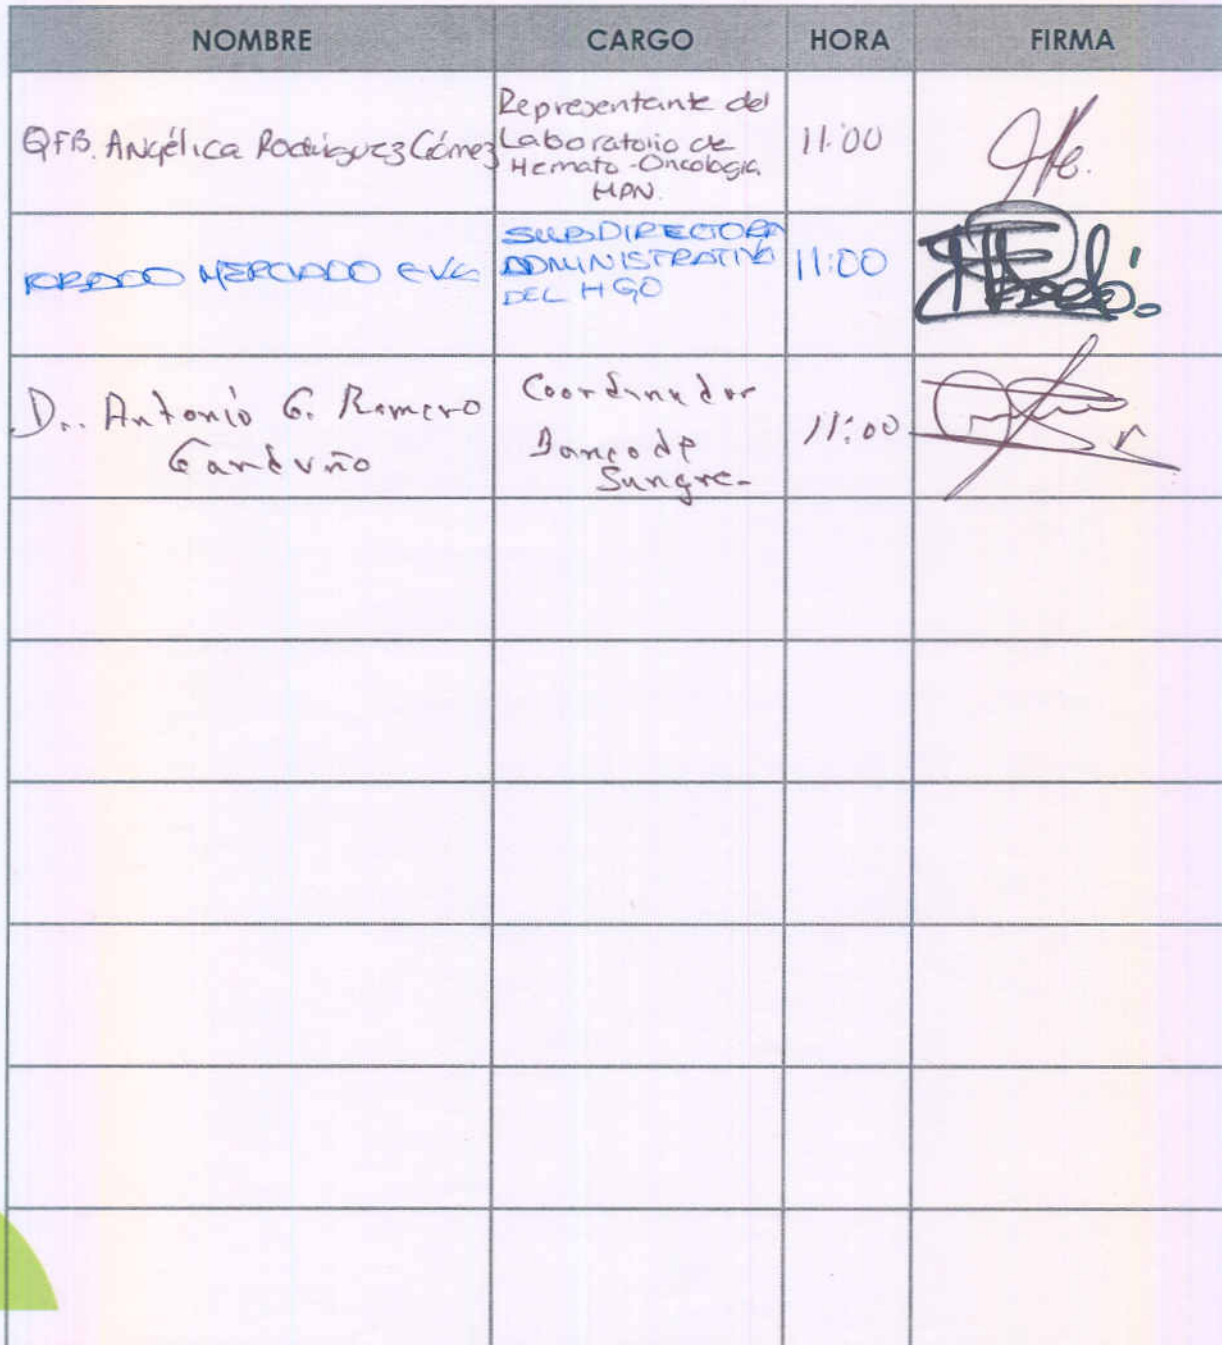 NOMBRE CARGO HORA FIRMA
QFB. Angélica Rodríguez Gómez
Representante del
Laboratorio de
Hemato-Oncología
HPN.
11:00
MERCADO EVA
SUBDIRECTORA
ADMINISTRATIVA
DEL HGO
11:00
Dr. Antonio G. Romero
Garduño
Coordinador
Banco de
Sangre-
11:00